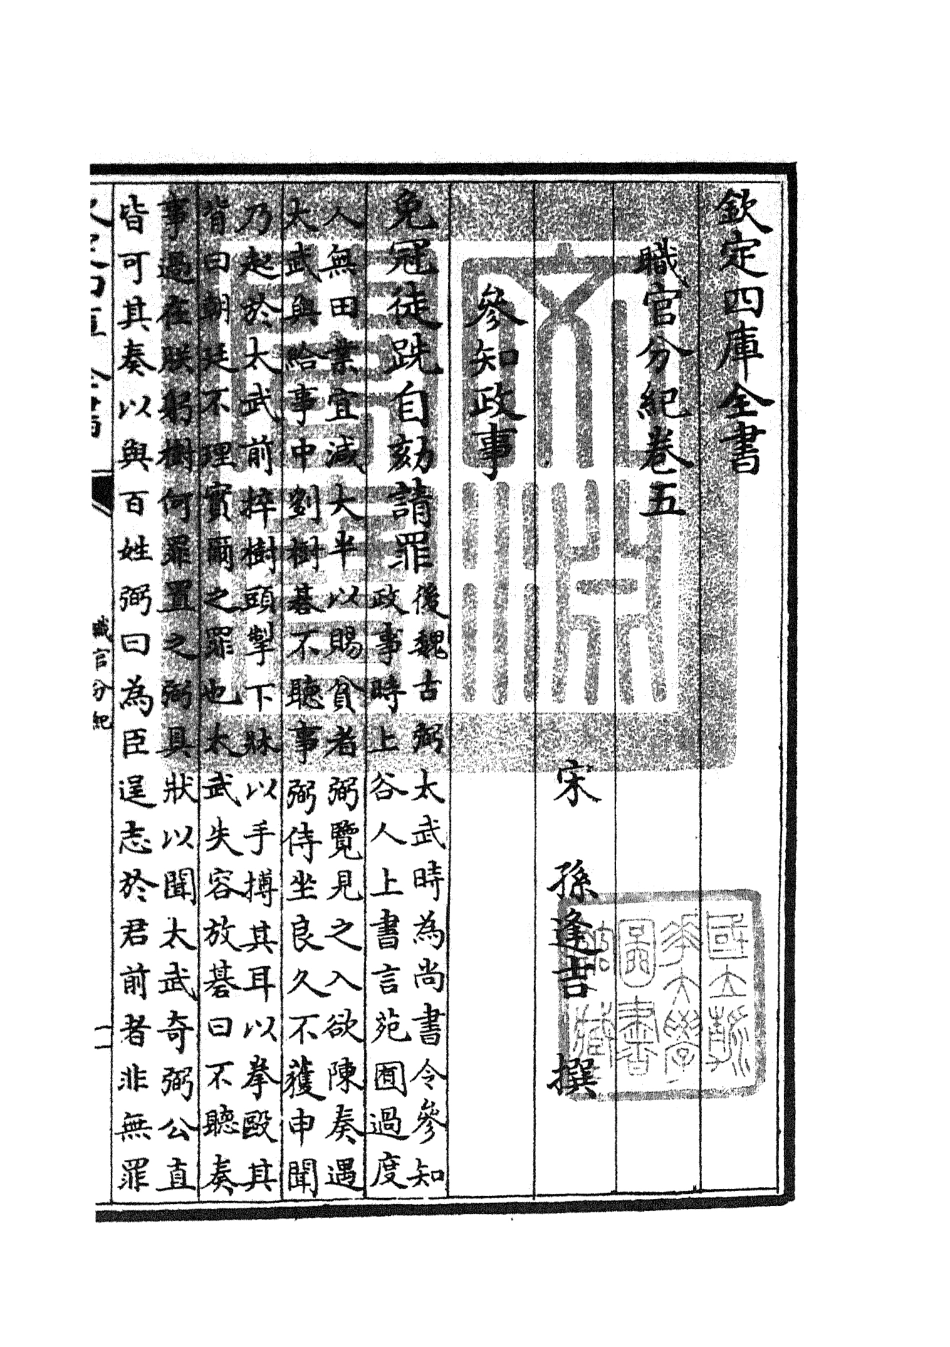 欽定四庫全書
職官分紀卷五
宋 孫逢吉 撰
參知政事
免冠徒跣自劾請罪
後魏古弼太武時為尚書令參知
政事時上谷人上書言苑囿過度
人無田業宜減大半以賜貧者弼覽見之入欲陳奏遇
大武與給事中劉樹碁不聽事弼侍坐良久不獲申聞
乃起於太武前捽樹頭掣下牀以手摶其耳以拳毆其
背曰朝廷不理實爾之罪也太武失容放碁曰不聽奏
事過在朕躬樹何罪置之弼具狀以聞太武奇弼公直
皆可其奏以與百姓弼曰為臣逞志於君前者非無罪
欽定四庫全書
職官分紀
國立浙
江大學
圖書
館藏
文淵
閣寶